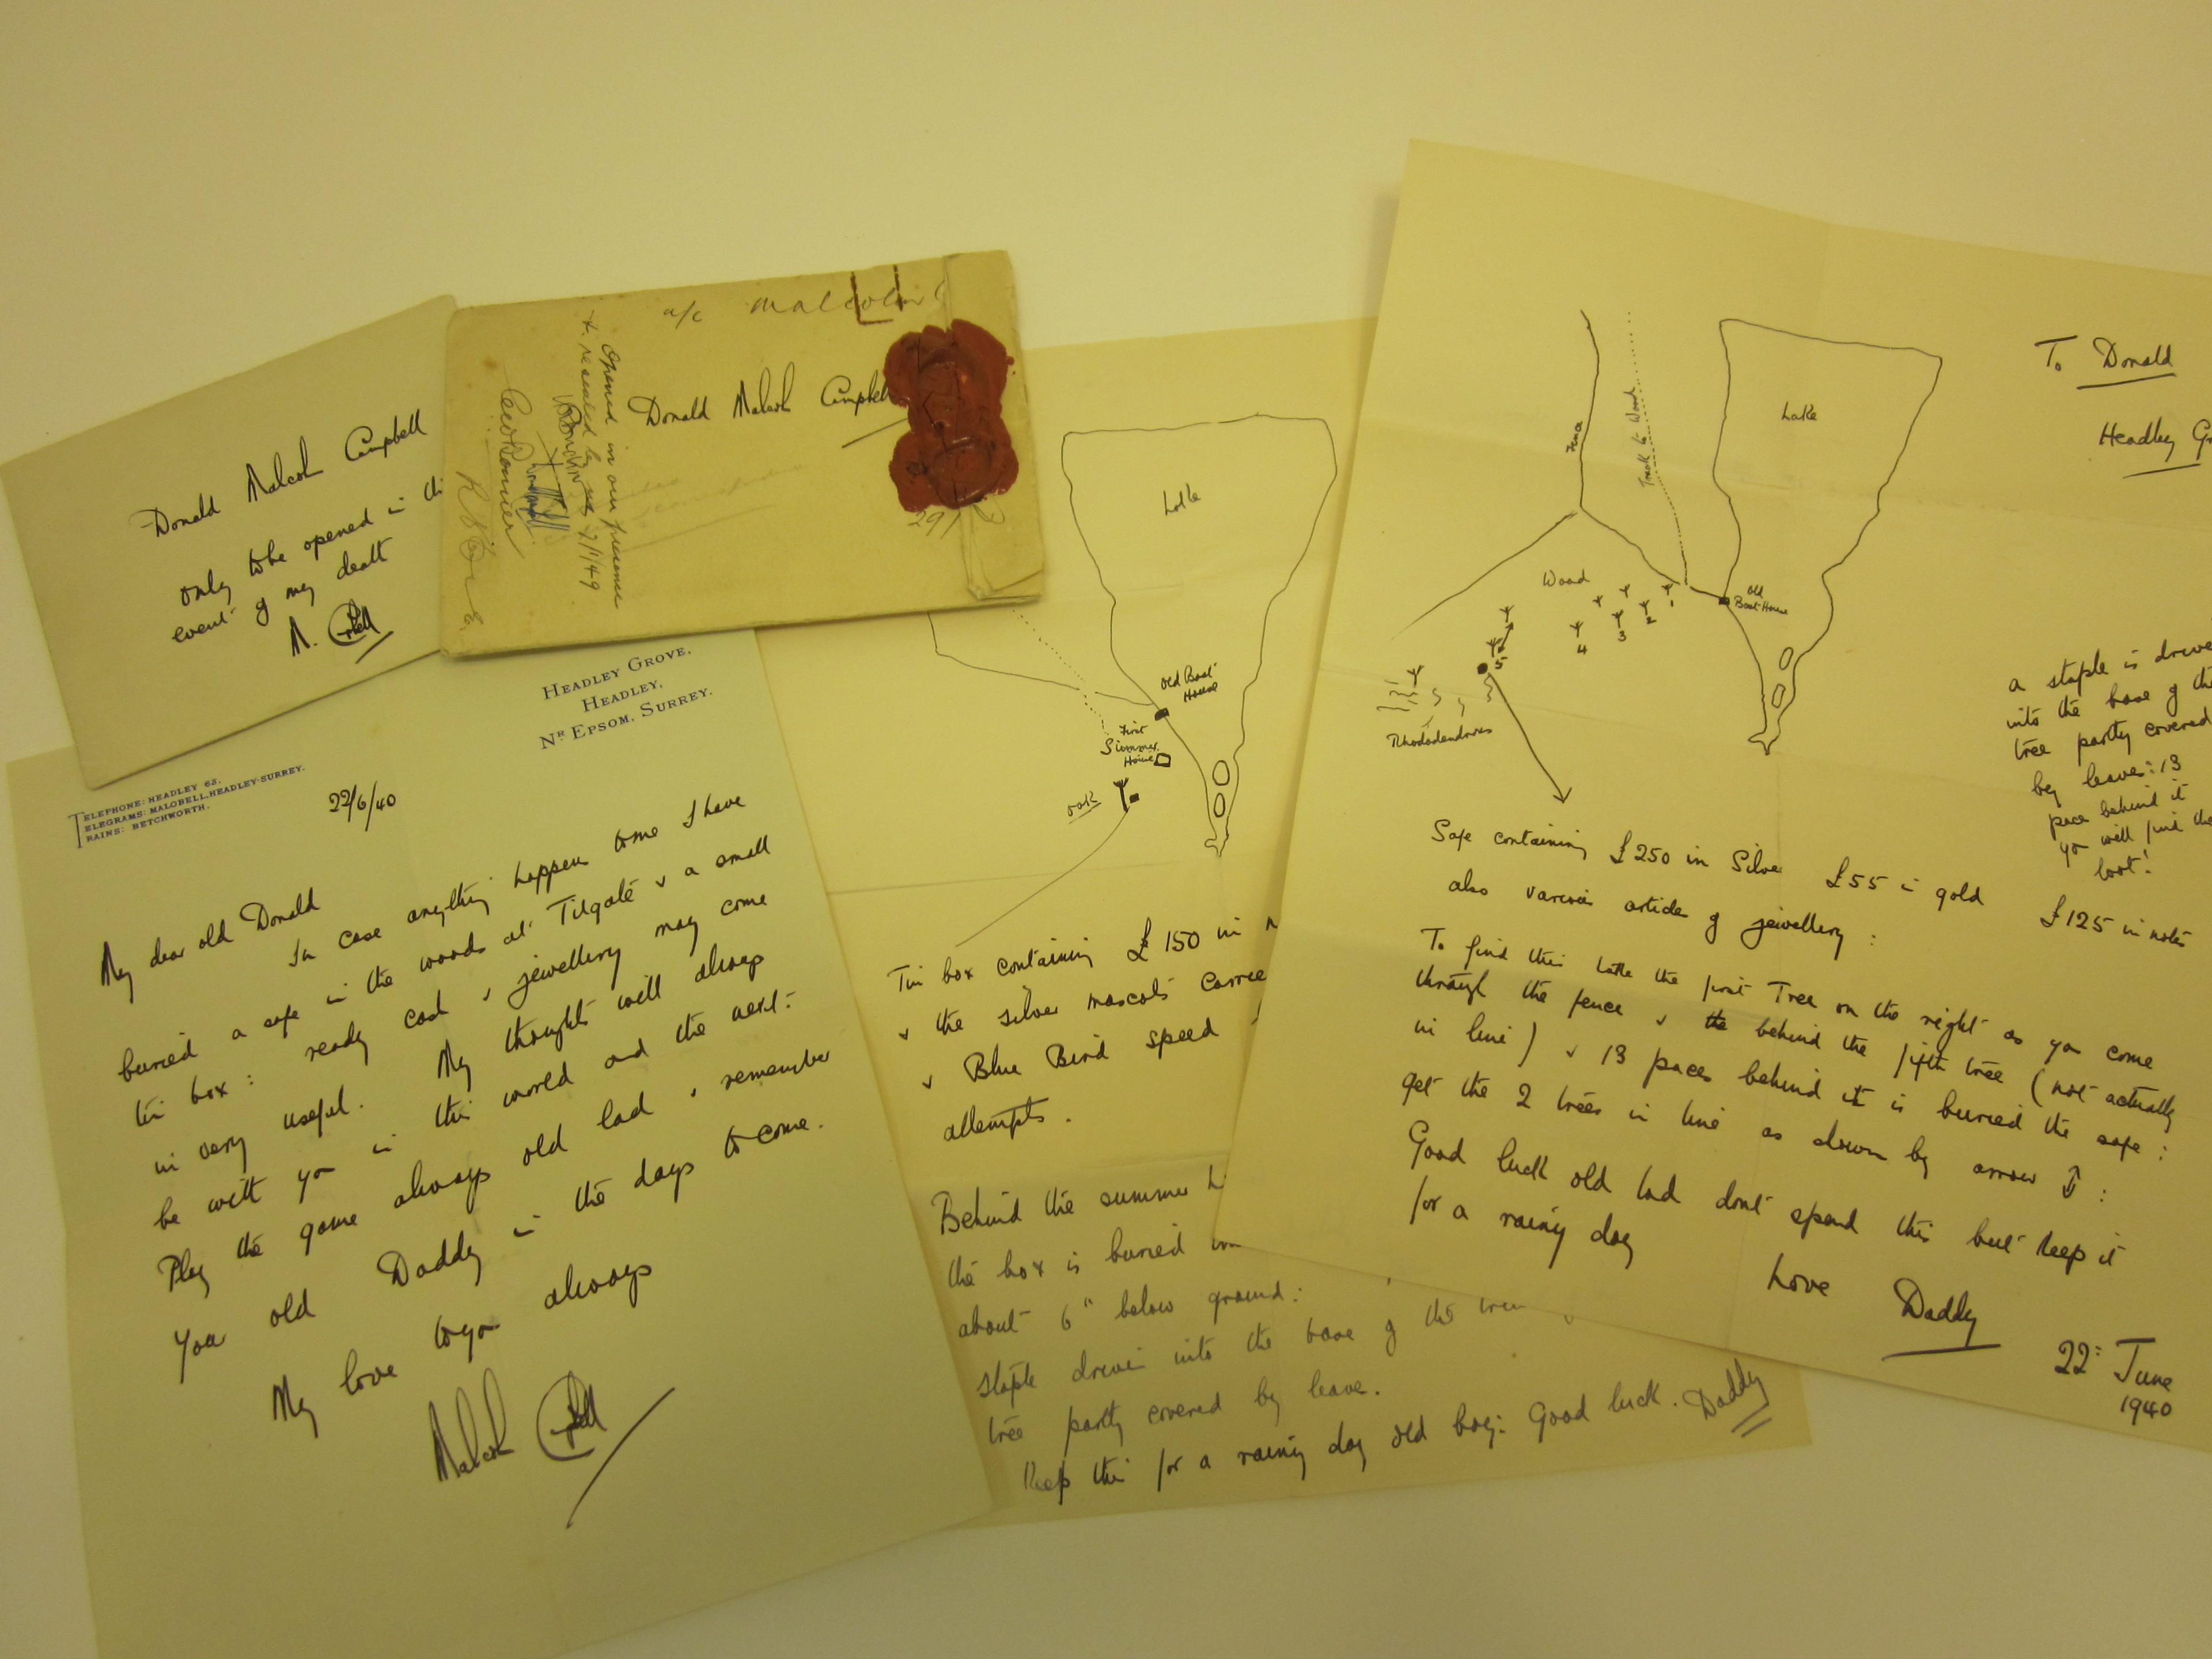 Donald Malcolm Campbell
only to be opened in th
event of my death
M. Campbell
a/c Malcolm C
Donald Malcolm Campbell
Opened in our presence
& resealed by us 2/1/49
29/
HEADLEY GROVE,
HEADLEY,
NR EPSOM, SURREY.
TELEPHONE: HEADLEY 63.
TELEGRAMS: MALOBELL, HEADLEY-SURREY.
RAINS: BETCHWORTH.
22/6/40
My dear old Donald
In case anything happen to me I have
buried a safe in the woods at Tilgate & a small
tin box: ready cash & jewellery may come
in very useful. My thoughts will always
be with you in this world and the next:
Play the game always old lad & remember
your old Daddy in the days to come.
My love to you always
Malcolm Campbell
Lake
Old Boat
House
First
Summer
House
oak
Tin box containing £150 in n
& the silver mascots carrie
& Blue Bird speed
attempts.
Behind the summer h
the box is buried
about 6" below ground:
staple driven into the base of the tree
tree partly covered by leave.
Keep this for a rainy day old boy: Good luck. Daddy
To Donald
Headley Gr
Fence
Track to Wood
Lake
Wood
Old
Boat House
1
2
3
4
5
Rhododendrons
a staple is drive
into the base of the
tree partly covered
by leaves: 13
pace behind it
you will find the
loot!
Safe containing £250 in Silver £55 in gold £125 in notes
also various article of jewellery:
To find this take the first Tree on the right as you come
through the fence & the behind the fifth tree (not actually
in line) & 13 paces behind it is buried the safe:
get the 2 trees in line as shown by arrow ↕:
Good luck old lad dont spend this but keep it
for a rainy day
Love Daddy
22: June
1940